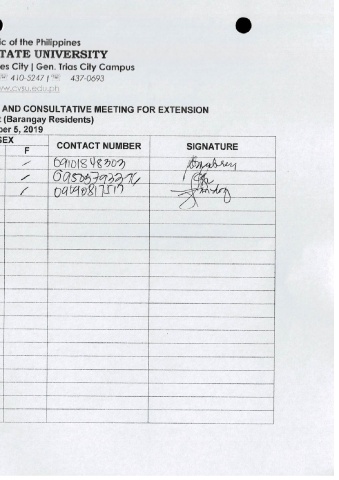 ic of the Philippines
TATE UNIVERSITY
es City | Gen. Trias City Campus
☏ 410-5247 | ☏ 437-0693
ww.cvsu.edu.ph
AND CONSULTATIVE MEETING FOR EXTENSION
(Barangay Residents)
ber 5, 2019
SEX
F CONTACT NUMBER SIGNATURE
/ 09101848303
/
/ 09090817517